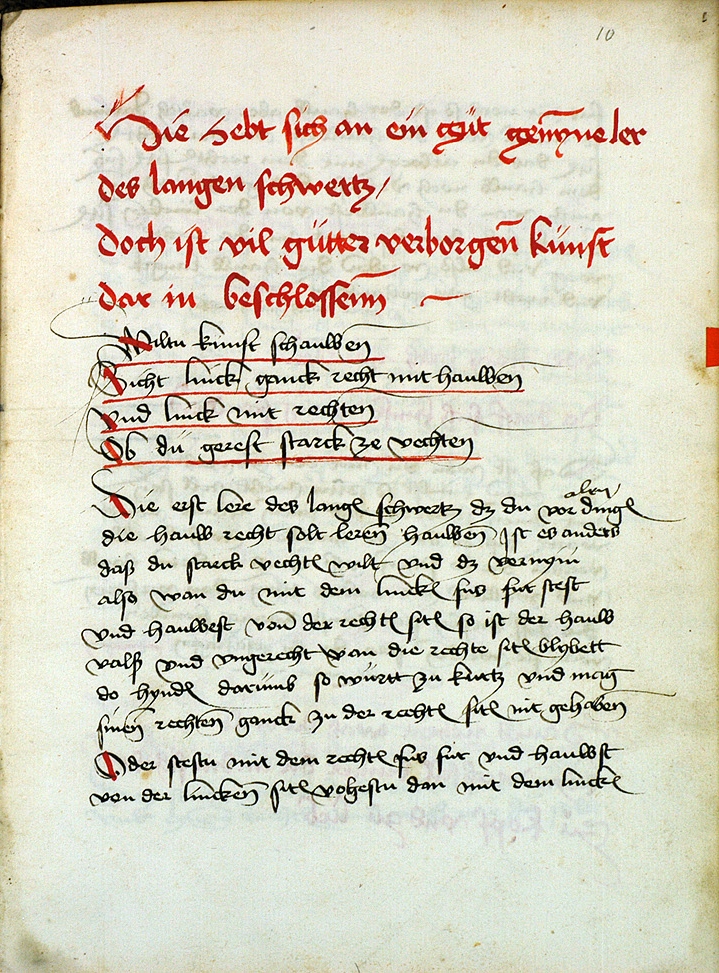 10
Hie hebt sich an ein gůt gemeyne ler
des langen schwertz /
doch ist vil gůtter verborgen̄ kunst
dar in beschlossenn̄
Wiltu kunst schauwen̄
Sicht linck ganck recht mit hauwen̄
vnd linck mit rechten̄
Ob dü gerest starck ze vechten̄
Die erst lere des langē schwertz dz du vor
allen dingē
die hauw recht solt leren̄ hauwen̄ Ist es anders
daß du starck vechtē wilt vnd dz vernym
also wan du mit dem linckē fus fur stest
vnd hauwest von̄ der rechtē sitē so ist der hauw
valß vnd vngerecht wan die rechte sitē blybett
do hyndē darumb so württ zu kurtz vnd mag
sinen̄ rechten̄ ganck zu der rechtē sitē nit gehaben̄
Oder stestu mit dem rechtē fus fur vnd hauwst
von der lincken̄ sitē volgestu dan mit dem linckē